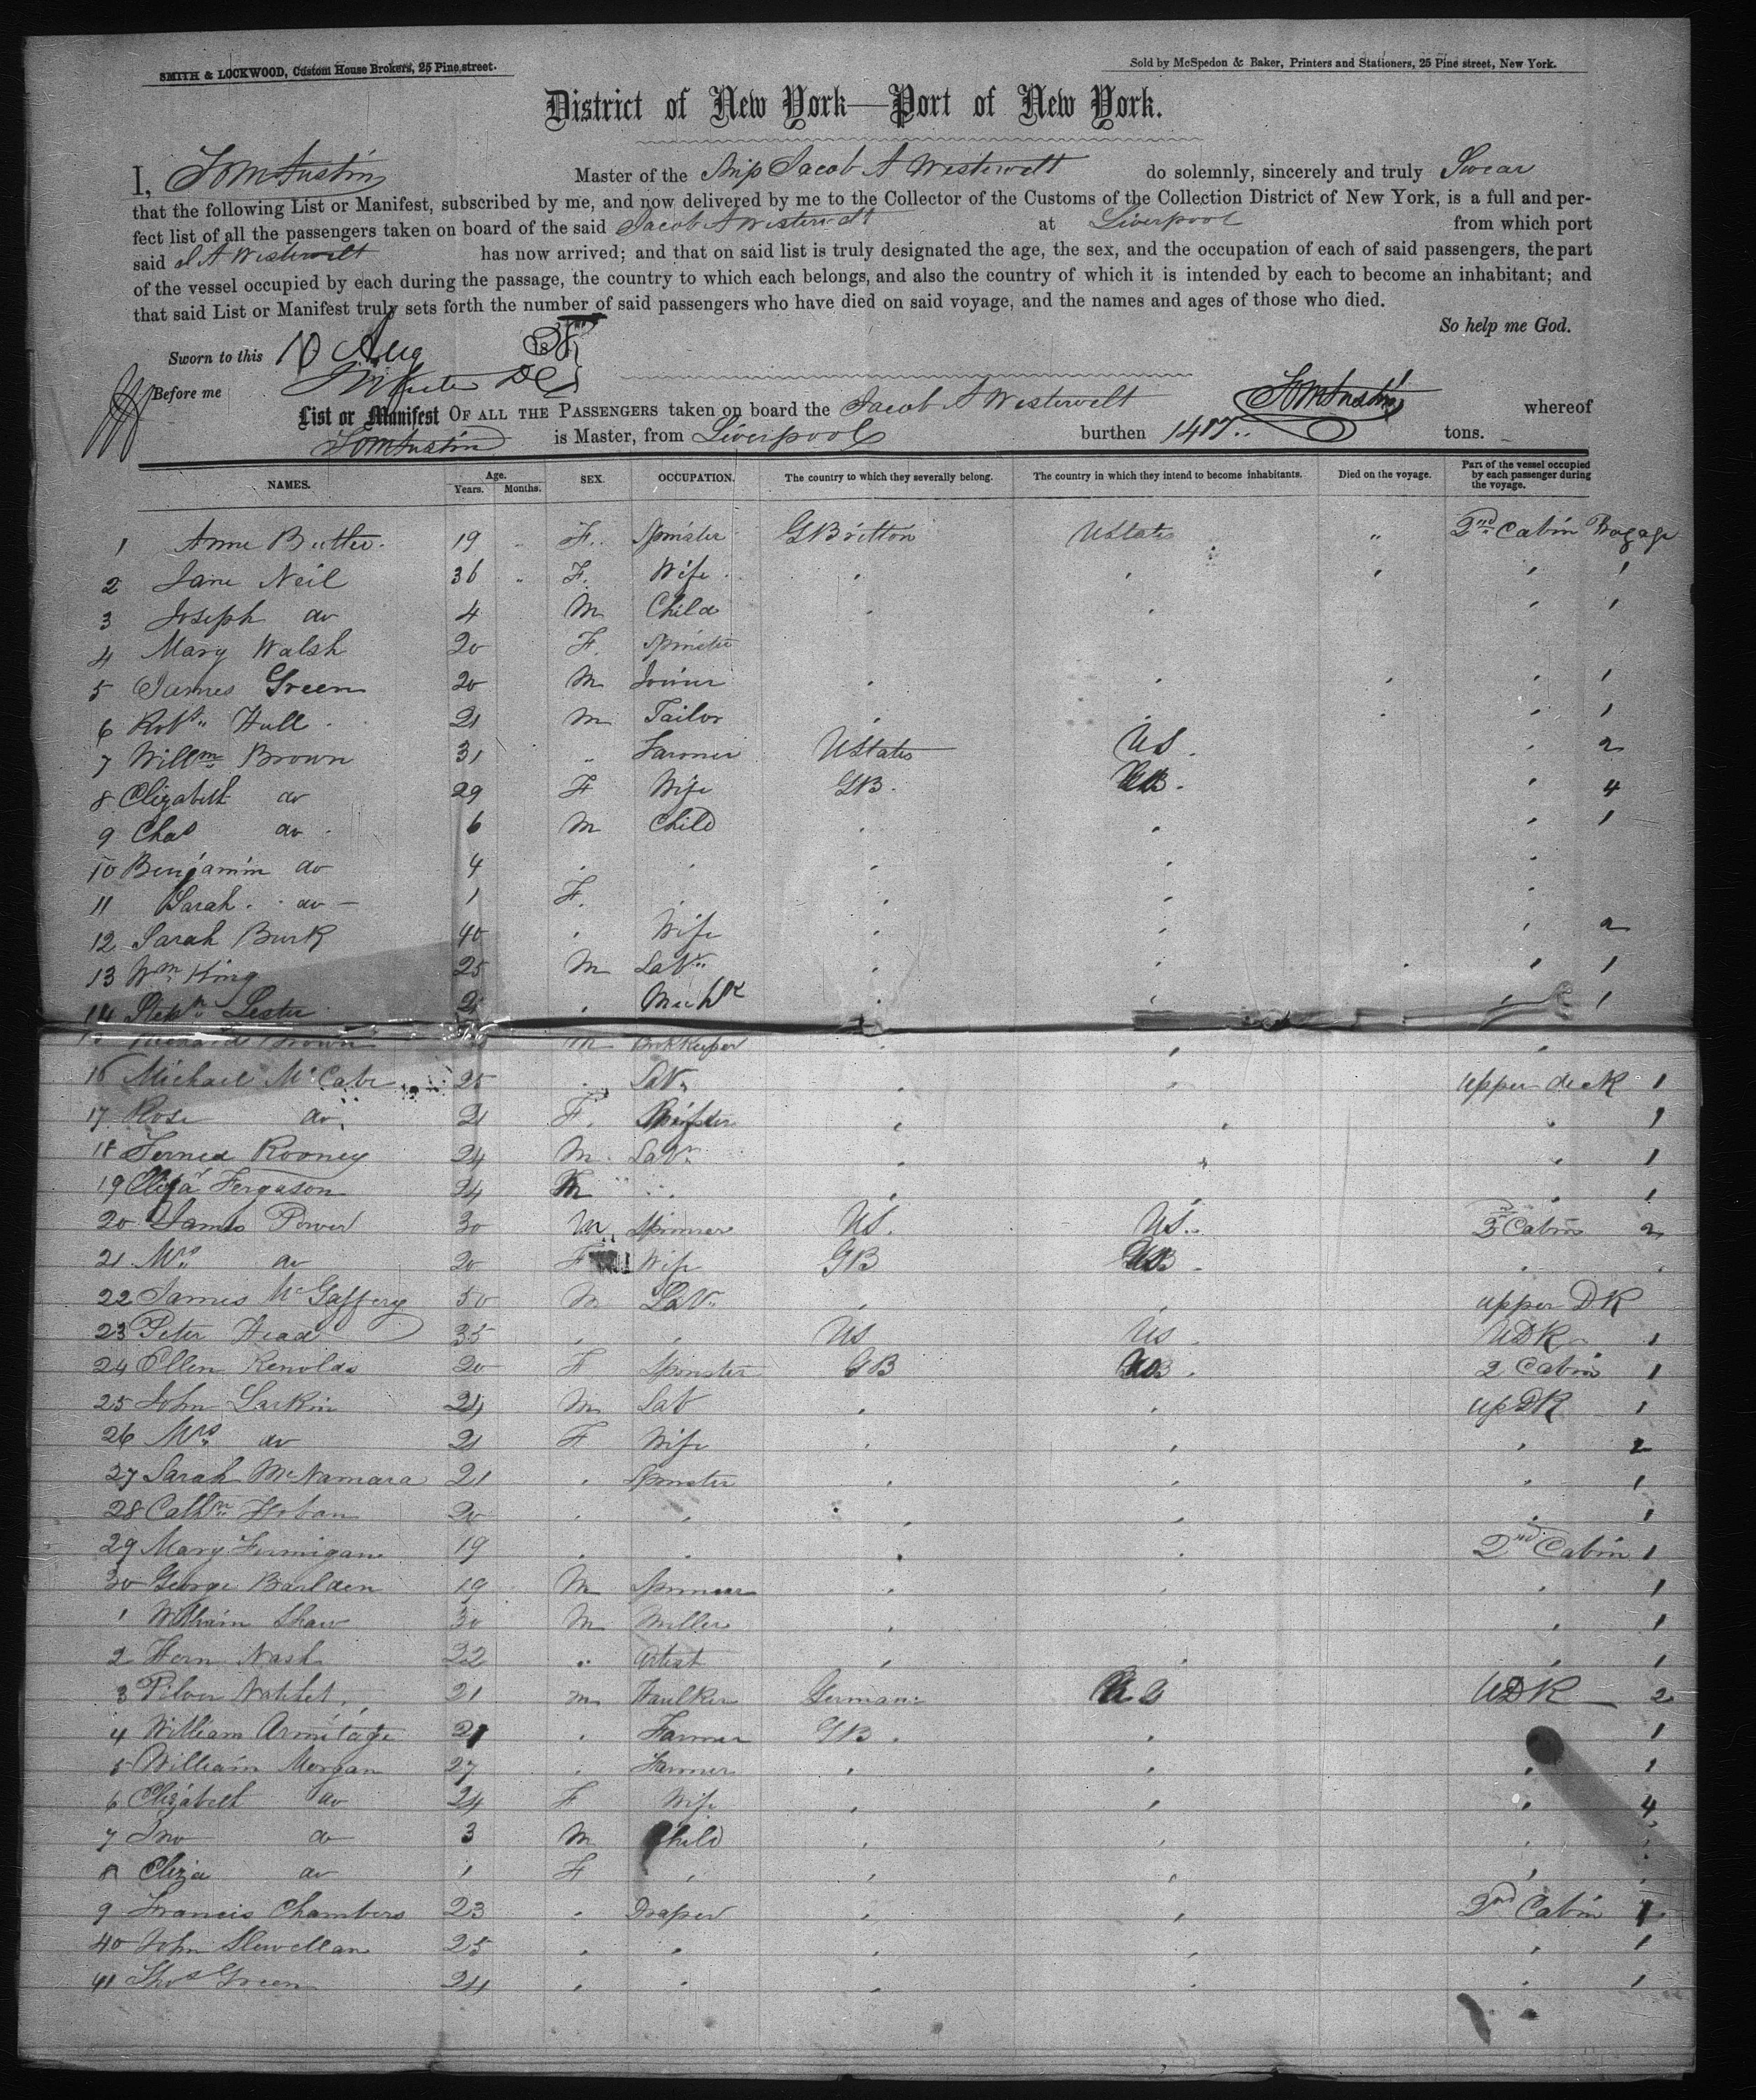 SMITH & LOCKWOOD, Custom House Brokers, 25 Pine street.
Sold by McSpedon & Baker, Printers and Stationers, 25 Pine street, New York.
District of New York—Port of New York.
I, Master of the Ship Jacob A Westervelt do solemnly, sincerely and truly Swear
that the following List or Manifest, subscribed by me, and now delivered by me to the Collector of the Customs of the Collection District of New York, is a full and per-
fect list of all the passengers taken on board of the said Jacob A Westervelt at Liverpool from which port
said J A Westervelt has now arrived; and that on said list is truly designated the age, the sex, and the occupation of each of said passengers, the part
of the vessel occupied by each during the passage, the country to which each belongs, and also the country of which it is intended by each to become an inhabitant; and
that said List or Manifest truly sets forth the number of said passengers who have died on said voyage, and the names and ages of those who died.
So help me God.
Sworn to this 10 Aug 18
Before me
List or Manifest OF ALL THE PASSENGERS taken on board the Jacob A Westervelt whereof
is Master, from Liverpool burthen tons.
NAMES. Age. Years. Months. SEX. OCCUPATION. The country to which they severally belong. The country in which they intend to become inhabitants. Died on the voyage. Part of the vessel occupied by each passenger during the voyage.
1 Anne Butler 19 " F. Spinster G Britton U States " 2nd Cabin Bagage
2 Jane Neil 36 " F. Wife " " " " 1
3 Joseph do 4 M Child " " " 1
4 Mary Walsh 20 F. Spinster
5 James Green 20 M Joiner " " " " 1
6 Robt Hull 21 M Tailor " " " " 1
7 Willm Brown 31 " Farmer U States US " 2
8 Elizabeth do 29 F Wife GB " 4
9 Chas do 6 M Child " " " 1
10 Benjamin do 4 " " " " "
11 Sarah do 1 F. " " " "
12 Sarah Burk 40 " Wife " " " 2
13 Wm King 25 M Labr " " " " 1
14 Lester " " " " 1
Brown M Bookkeeper " " "
16 Michael McCabe 25 " Lab " " upper deck 1
17 Rose do 21 F. Spinster " " " 1
18 Rooney 24 M Labr " " " 1
19 Eliza Ferguson 24 " " " " 1
20 James Power 30 M Spinner US. US. 2 Cabin 2
21 Mrs do 20 F Wife GB " "
22 James McGaffery 50 M Lab " " upper DK
23 Peter Head 35 " " US US UDK 1
24 Ellen Renolds 20 F Spinster GB 2 Cabin 1
25 John Larkin 24 M Lab " " upDK 1
26 Mrs do 21 F Wife " " " 2
27 Sarah McNamara 21 " Spinster " " " 1
28 Cathn Hoban 20 " " " " " 1
29 Mary 19 " " " " 2nd Cabin 1
30 George 19 M Spinner " " " 1
1 William Shaw 30 M Miller " " " 1
2 Nash 22 " Artist " " " 1
3 21 m German UDK 2
4 William Armitage 21 " Farmer GB " 1
5 William Morgan 27 " Farmer " " " 1
6 Elizabeth do 24 F Wife " " " 4
7 Jno do 3 M Child " " " "
8 Eliza do 1 F " " " " "
9 Francis Chambers 23 " Draper " " 2nd Cabin 1
40 John Llewellan 25 " " " " " 1
41 Thos Green 24 " " " " " 1